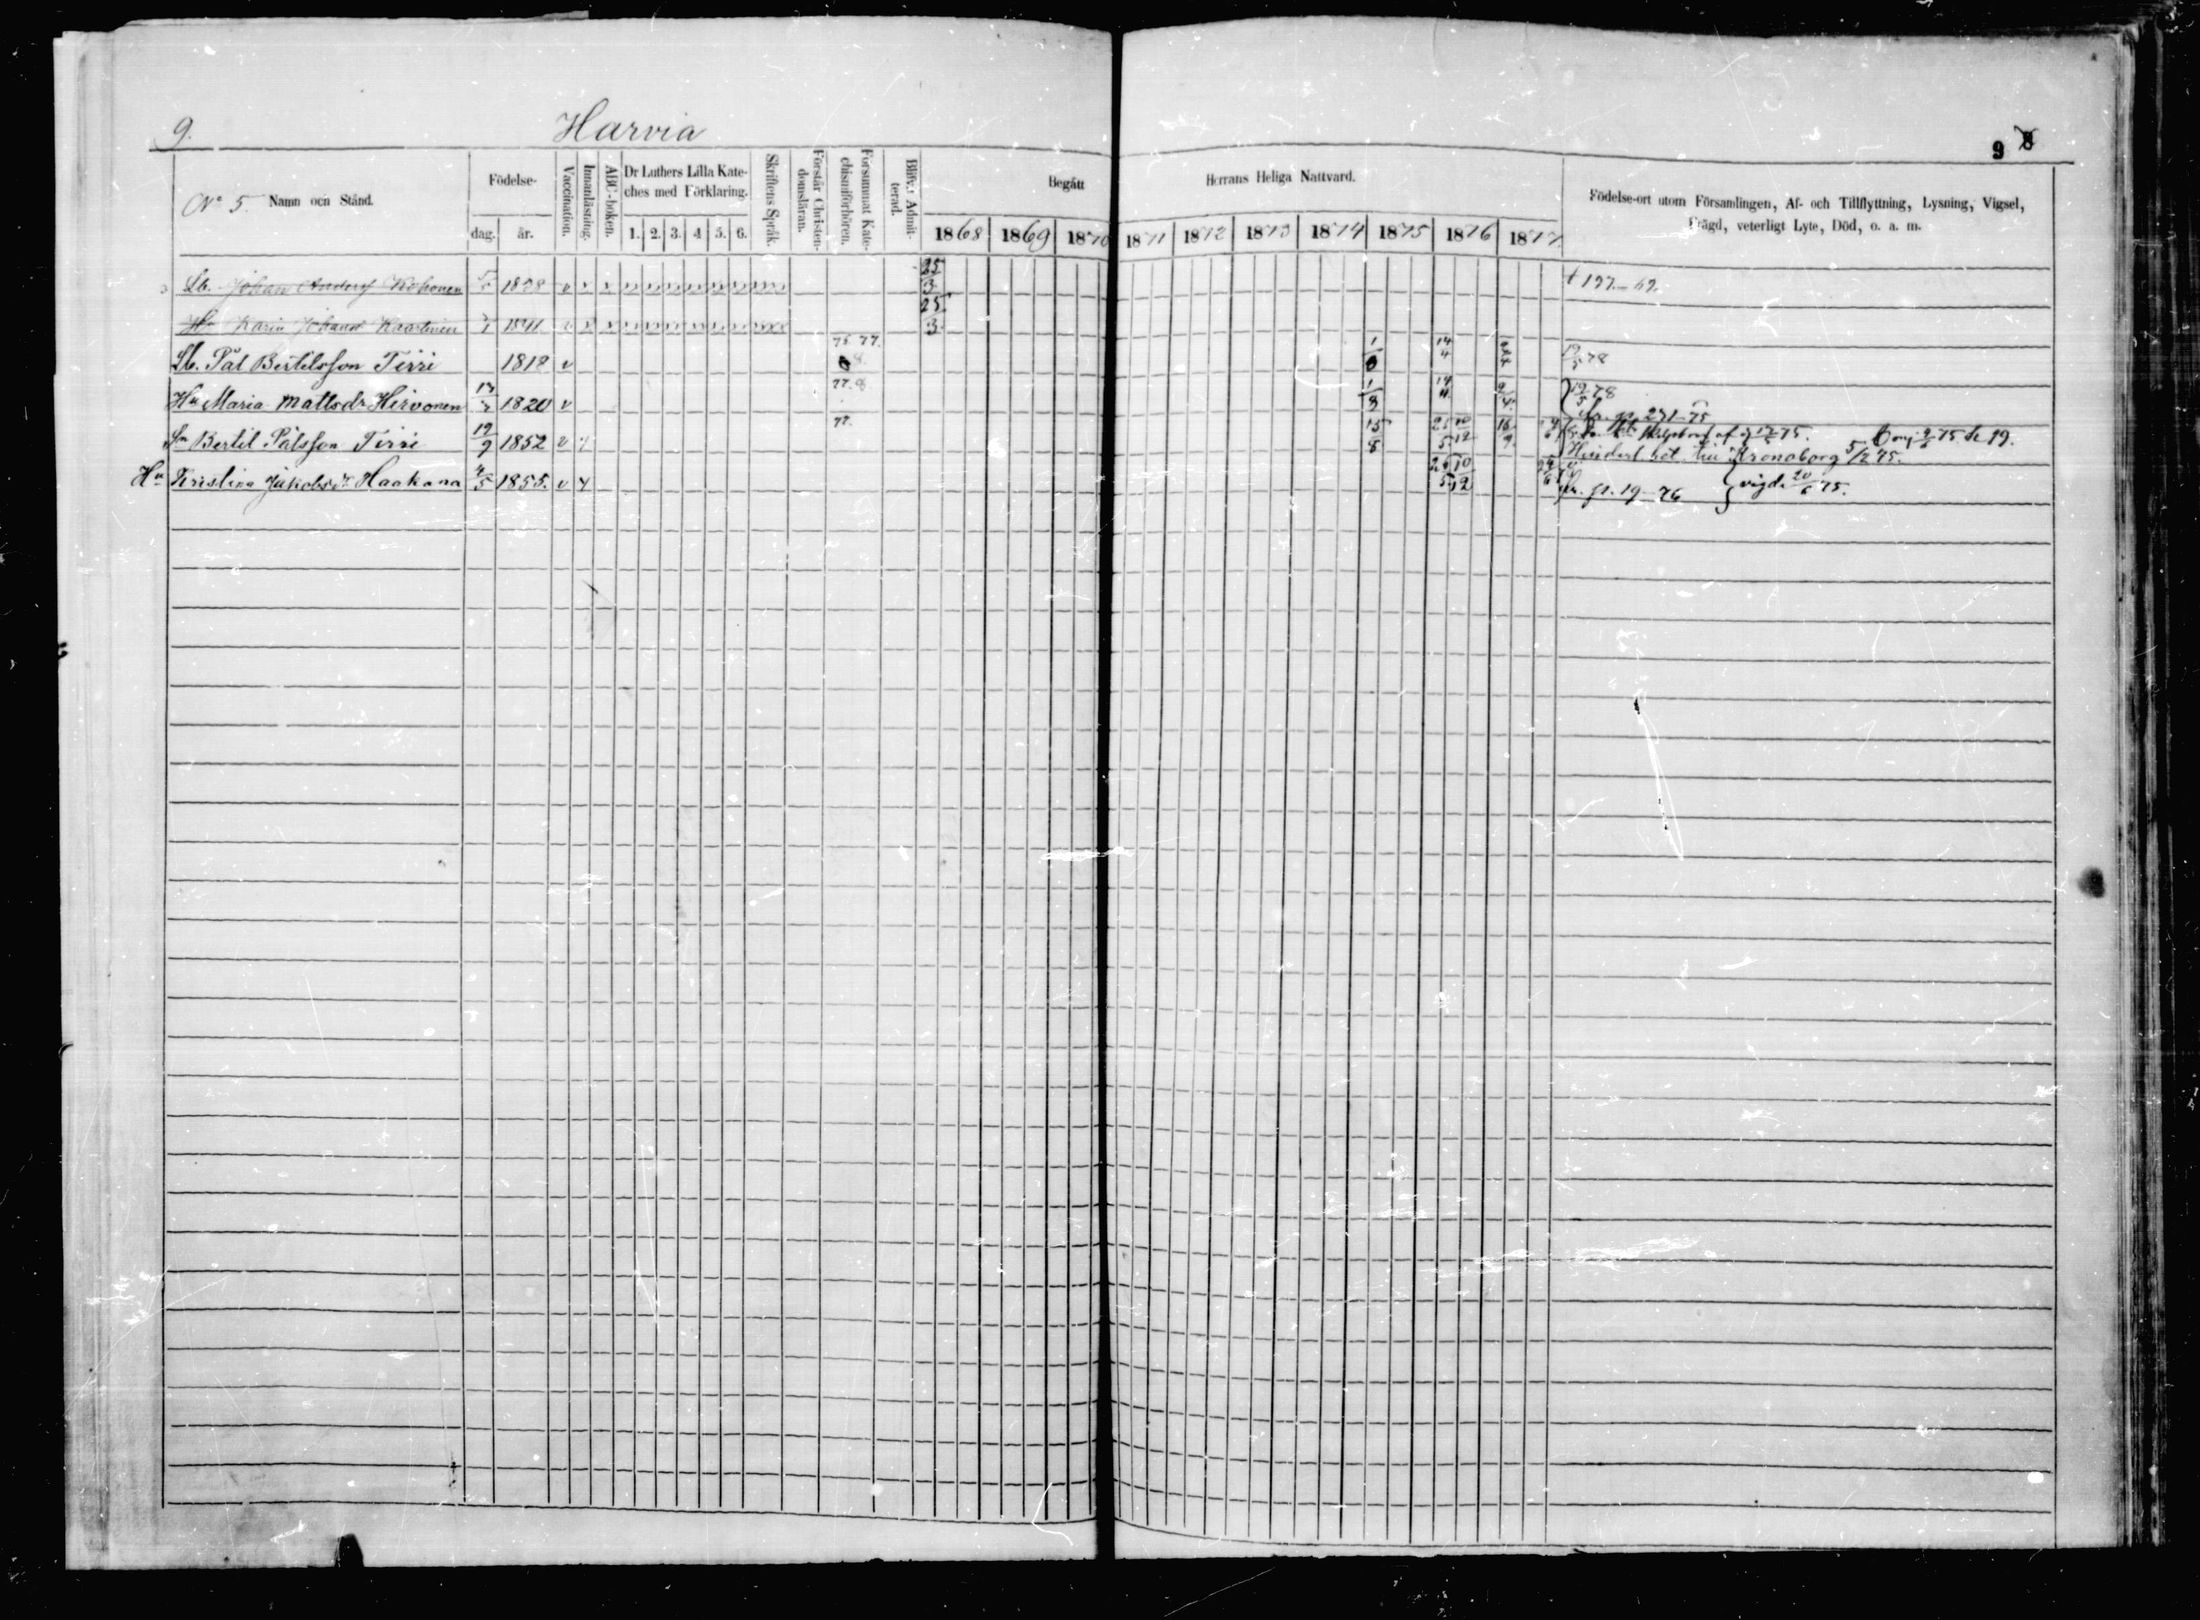 9. Harvia
9 8
No 5. Namn och Stånd.
Födelse-
dag. år.
Vaccination.
Innanläsning.
ABC-boken.
Dr Luthers Lilla Kate-
ches med Förklaring.
1. 2. 3. 4 5. 6.
Skriftens Språk.
Förstår Christen-
domsläran.
Försummat Kate-
chismiförhören.
Blifv. Admit-
terad.
Begått Herrans Heliga Nattvard.
1868 1869 1870 1871 1872 1873 1874 1875 1876 1877
Födelse-ort utom Församlingen, Af- och Tillflyttning, Lysning, Vigsel,
Frägd, veterligt Lyte, Död, o. a. m.
Lb. Johan Kohonen v x x 25/3 t 197.-69.
Hu Karin Johansd Kaartinen 1841 v x x 25/3
Lb. Pål Bertelsson Tirri 1818 v 76 77. 8. 14/4 19/5 78
Hu Maria Mattsdr Hirvonen 1820 v 77. 8 1/3 9/4. 19/5 78
fr. p. 271-75
Sn Bertil Pålsson Tirri 19/9 1852 v 77. 15/8 25/5 10/12 16/9
Hindersl. bet. till Kronoborg 5/2 75.
Hu Kristina Jakobsdr Haakana 4/5 1855. v 25/5 10/12 24/6 fr. p. 19-76 vigde 20/6 75.